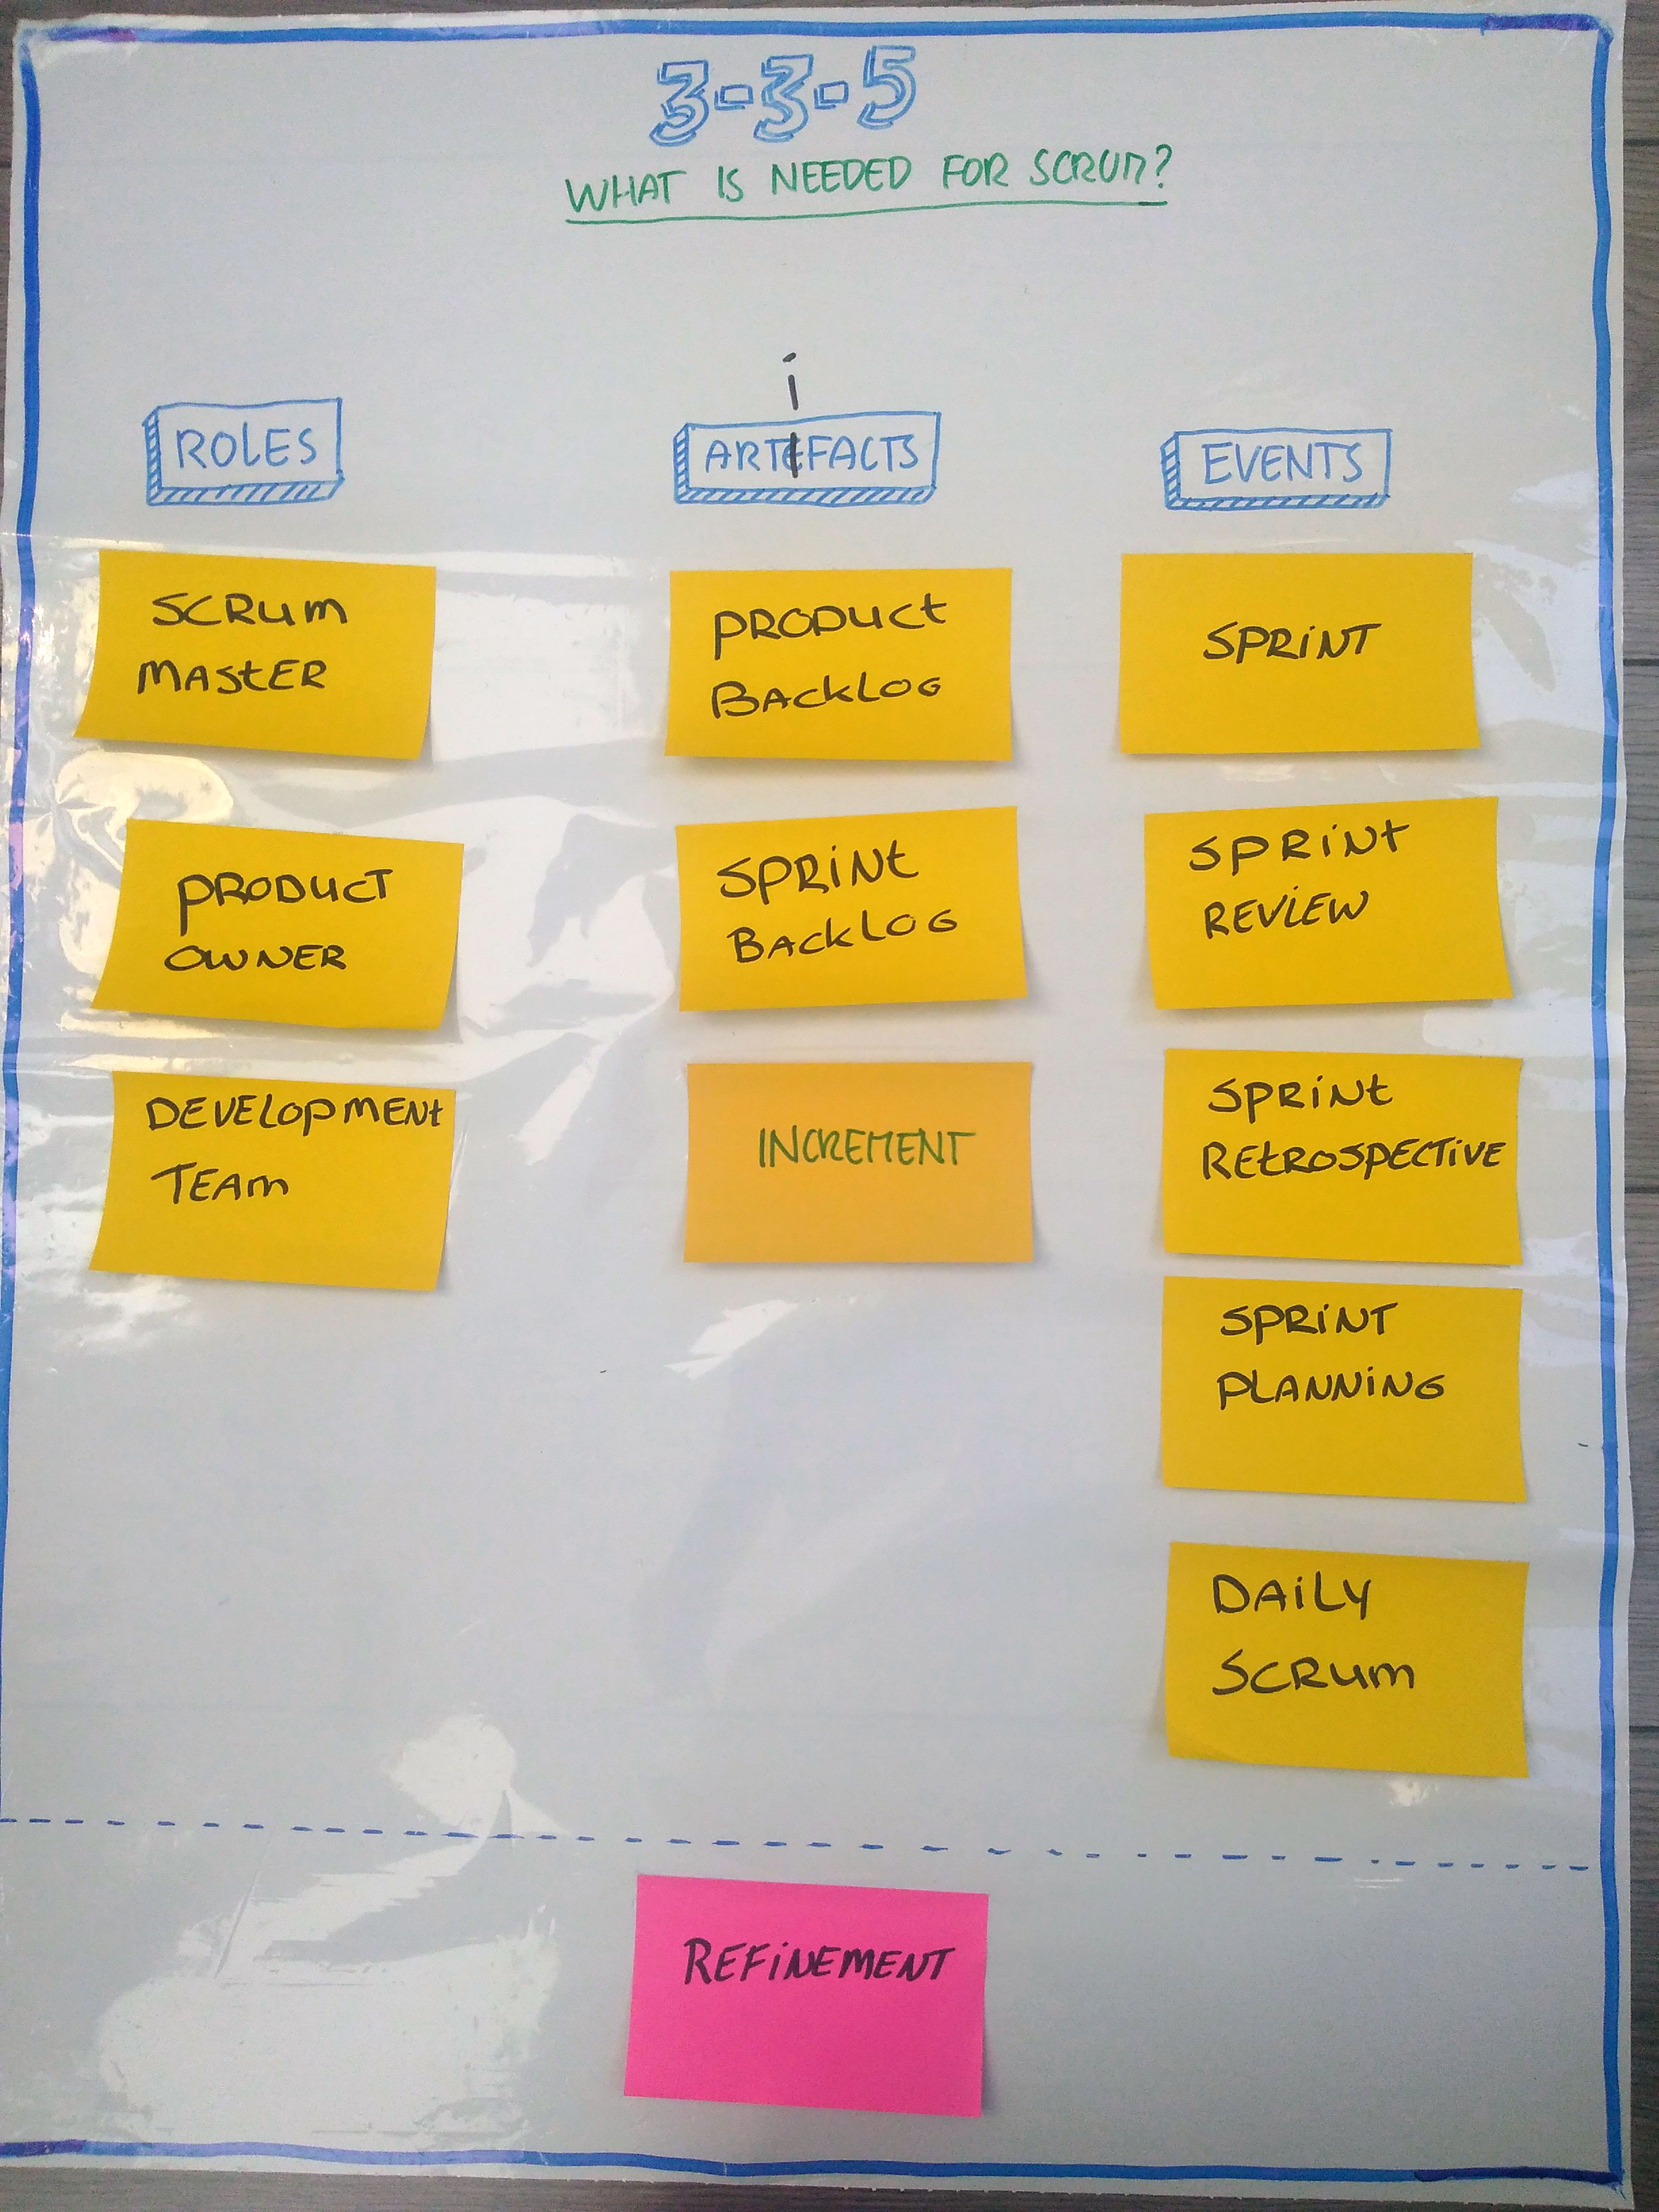 3-3-5
WHAT IS NEEDED FOR SCRUM?
ROLES
SCRUM
MASTER
PRODUCT
OWNER
DEVELOPMENT
TEAM
i
ARTEFACTS
PRODUCT
BACKLOG
SPRINT
BACKLOG
INCREMENT
EVENTS
SPRINT
SPRINT
REVIEW
SPRINT
RETROSPECTIVE
SPRINT
PLANNING
DAILY
SCRUM
REFINEMENT